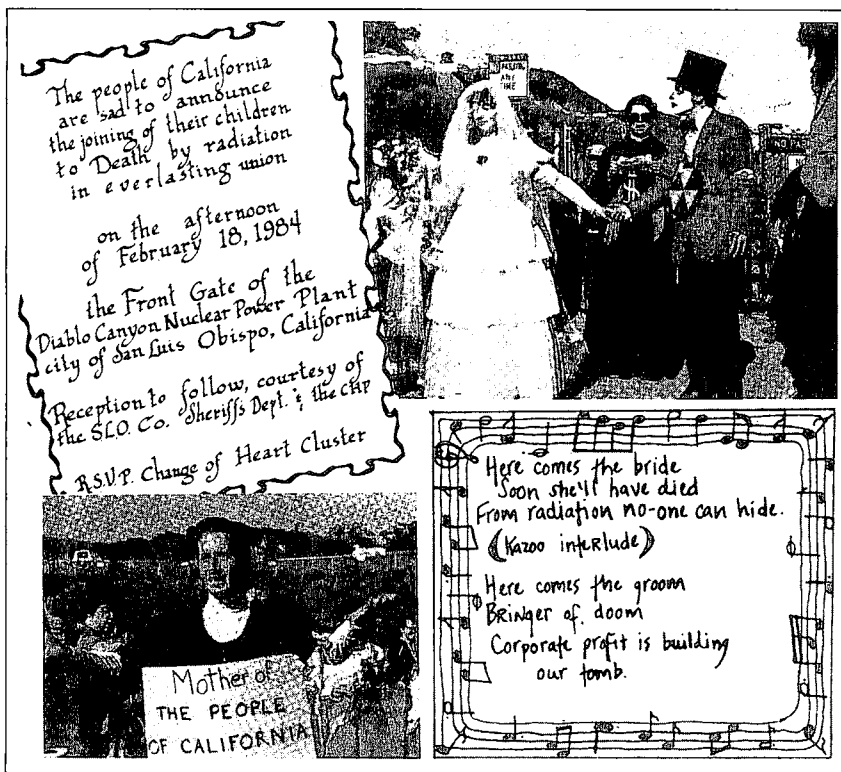 The people of California
are sad to announce
the joining of their children
to Death by radiation
in everlasting union
on the afternoon
of February 18, 1984
the Front Gate of the
Diablo Canyon Nuclear Power Plant
city of San Luis Obispo, California
Reception to follow, courtesy of
the S.L.O. Co. Sheriff's Dept. & the CHP
R.S.V.P. Change of Heart Cluster
PARKING
ANY
TIME
Mother of
THE PEOPLE
OF CALIFORNIA
Here comes the bride
Soon she'll have died
From radiation no-one can hide.
(Kazoo interlude)
Here comes the groom
Bringer of doom
Corporate profit is building
our tomb.